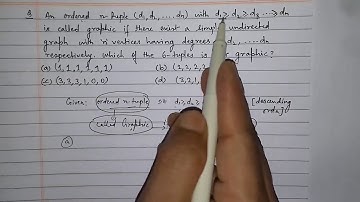 Q An ordered n-tuple (d₁, d₂, .... dn) with d₁ ≥ d₂ ≥ d₃ ... ≥ dn
is called graphic if there exist a simple undirected
graph with 'n' vertices having degrees d₂, .... dn
respectively, which of the 6-tuples is graphic?
(a) (1, 1, 1, 1, 1, 1) (b) (2, 2, 2,
(c) (3, 3, 3, 1, 0, 0) (d) (3, 2, 1,
Given: ordered n-tuple d₁ ≥ d₂ ≥ [descending
order]
called Graphic
(a)